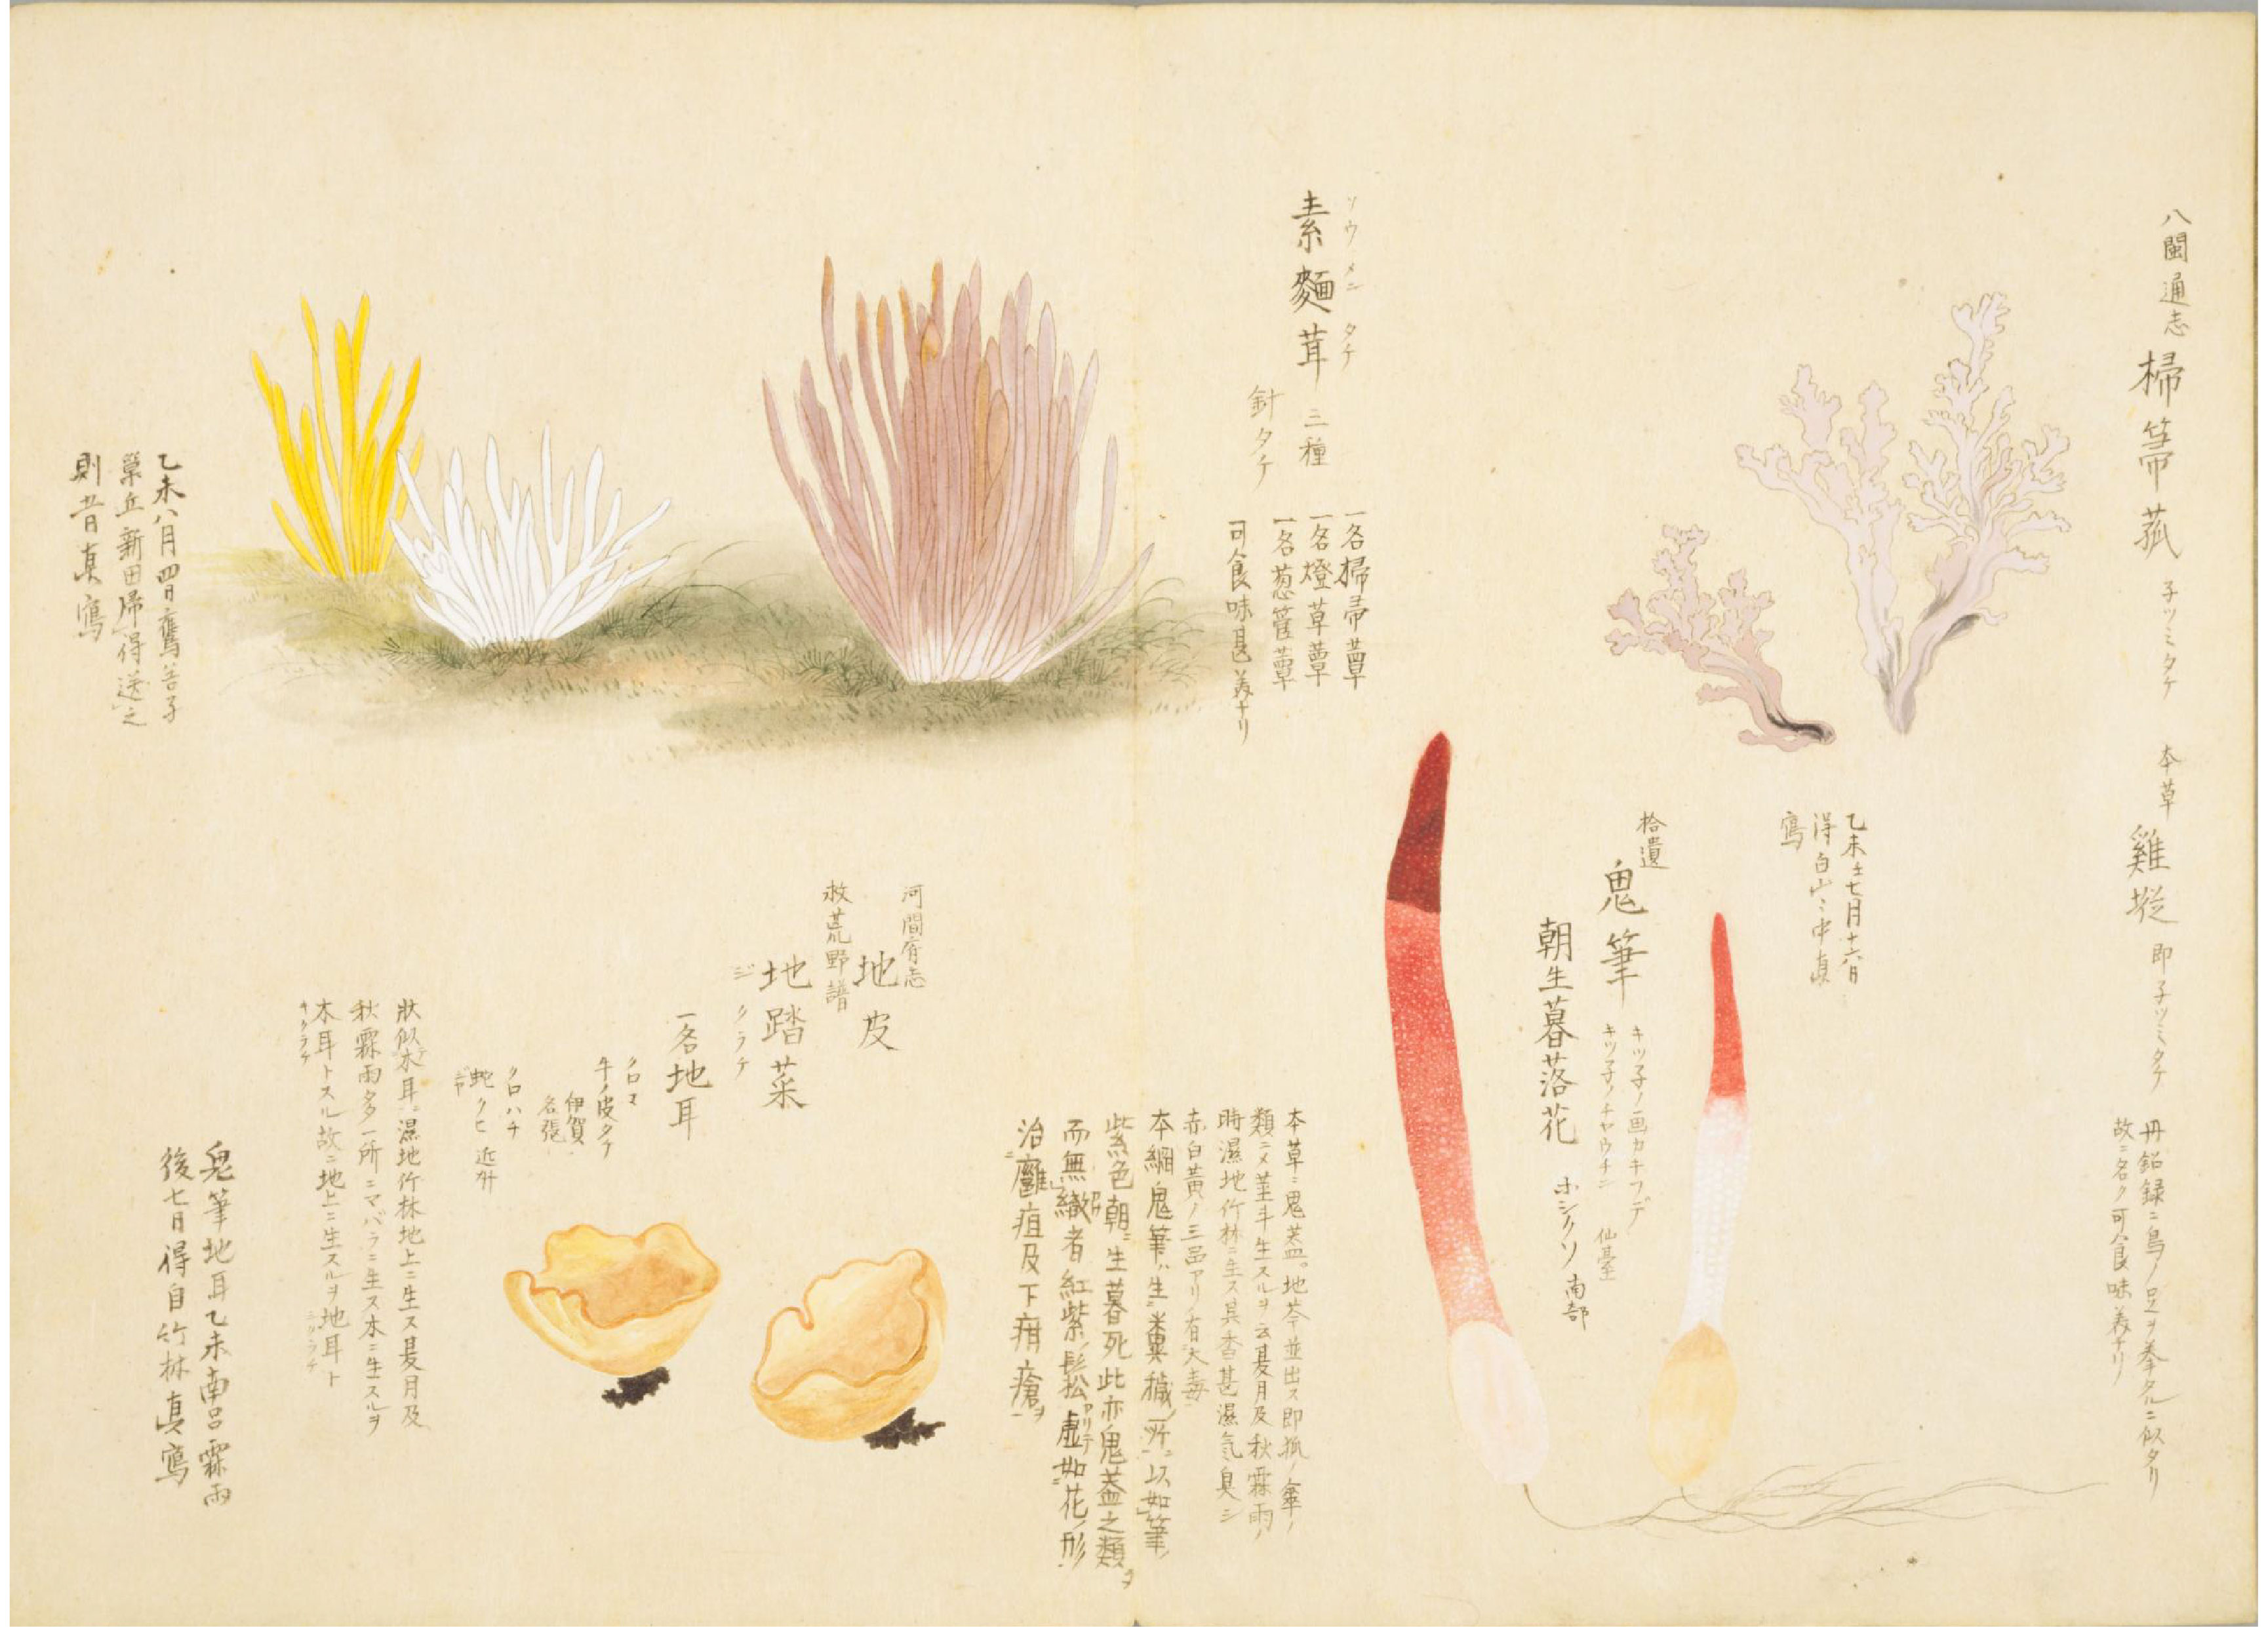 八閩通志
掃箒菰 子ツミタケ
本草
雞㙡 即子ツミタケ
丹鉛録ニ鳥ノ足ヲ拳タルニ似タリ
故ニ名ク可食味美ナリ
乙未七月十六日
得白山ニ中真
寫
拾遺
鬼筆
キツ子ノ画カキフデ
キツ子ノチヤウチン 仙臺
朝生暮落花 ホシクソ 南部
ソウメンタケ
素麵茸 三種
針タケ
一名掃帚蕈
一名燈草蕈
一名葱管蕈
可食味甚美ナリ
本草ニ鬼蓋。地苓並出ス即狐ノ傘ノ
類ニメ茎斗生スルヲ云夏月及秋霖雨ノ
時濕地竹林ニ生ス其香甚濕気臭シ
赤白黄ノ三品アリ有大毒
本綱鬼筆ハ生糞穢ノ所ニ以如筆ノ
紫色朝ニ生暮死此亦鬼蓋之類ヲ
而無繖者紅紫ノ鬆虚アリテ如花ノ形
治癰疽及下疳瘡ヲ
河間府志
地皮
救荒野譜
地踏菜
ジクラケ
一名地耳
クロマ
牛ノ皮タケ
伊賀
名張
クロハチ
蛇クヒ 近州
狀似木耳濕地竹林地上ニ生ス夏月及
秋霖雨多一所ニマバラニ生ス木ニ生スルヲ
木耳トスル故ニ地上ニ生スルヲ地耳ト
キクラケ
乙未八月四日鷹善子
巣丘新田帰得送之
則昔真寫
鬼筆地耳乙未南呂霖雨
後七月得自竹林真寫